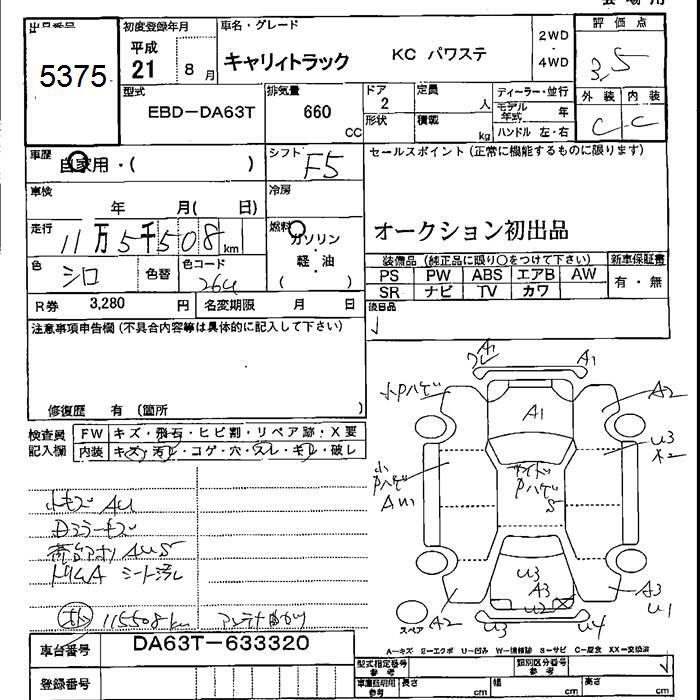 会場用
出品番号
5375
初度登録年月
平成
21 8月
車名・グレード
キャリィトラック KC パワステ
2WD
・
4WD
評価点
3.5
外装 内装
C C
型式
EBD-DA63T
排気量
660
CC
ドア
2
形状
定員
人
積載
kg
ディーラー・並行
モデル年式 年
ハンドル 左・右
車歴
自家用・( )
シフト
F5
セールスポイント(正常に機能するものに限ります)
オークション初出品
車検
年 月( 日)
冷房
走行
11万5千508km
燃料
ガソリン
軽・油
( )
色
シロ
色替
色コード
26U
装備品(純正品に限り○をつけて下さい)
新車保証書
PS PW ABS エアB AW
SR ナビ TV カワ
有・無
R券 3,280 円
名変期限 月 日
後日品
注意事項申告欄(不具合内容等は具体的に記入して下さい)
修復歴 有 (箇所 )
検査員
記入欄
FW キズ・飛石・ヒビ割・リペア跡・X要
内装 キズ・汚レ・コゲ・穴・スレ・キレ・破レ
A1
A1
小Pハゲ
A2
A1
U3
A2
小
Pハゲ
AU1
サイド
Pハゲ
S
小キズ AU
Dミラーキズ
荷台アオリ AUS
トリムA シート汚レ
115508km アンテナ曲り
U3
A3
U2
A2
A3
U1
U3
U4
スペア
A-キズ E-エクボ U-凹み W-補修跡 S-サビ C-腐食 XX-交換済
車台番号
DA63T-633320
登録番号
型式指定番号
参考
類別区分番号
参考
車庫証明用
参考
長さ cm
幅 cm
高さ cm